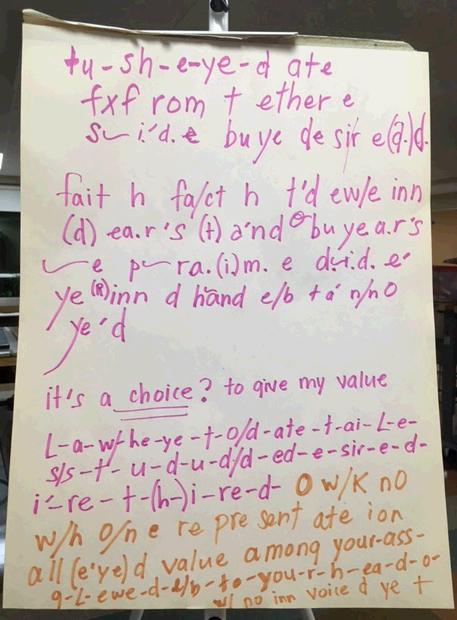 tu-sh-e-ye-d ate
fxf rom t ether e
i'd.e buye de sir e(a.)d.
fait h fa/ct h t'd ew/e inn
(d) ea.r's (t) a'nd buyea.r's
e p ra.(i)m. e d.i.d. e'
ye(R)inn d hand e/b t a' n/no
ye'd
it's a choice? to give my value
L-a-w/-he-ye-t-o/d-ate-t-ai-L-e-
s/s-t-u-d-u-d/d-ed-e-sir-e-d-
i'-re-t-(h-)i-re-d- O w/K no
w/h o/n e re pre sent ate ion
all (e'ye)d value among your-ass-
g-L-ewe-d-e/b-to-you-r-h-ea-d-o-
w/ no inn voice d ye t